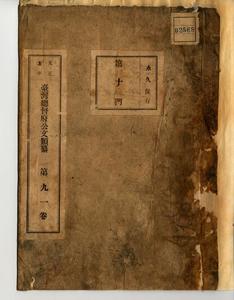 永久保存
第十門
大正五年
臺灣總督府公文類纂
第九一卷